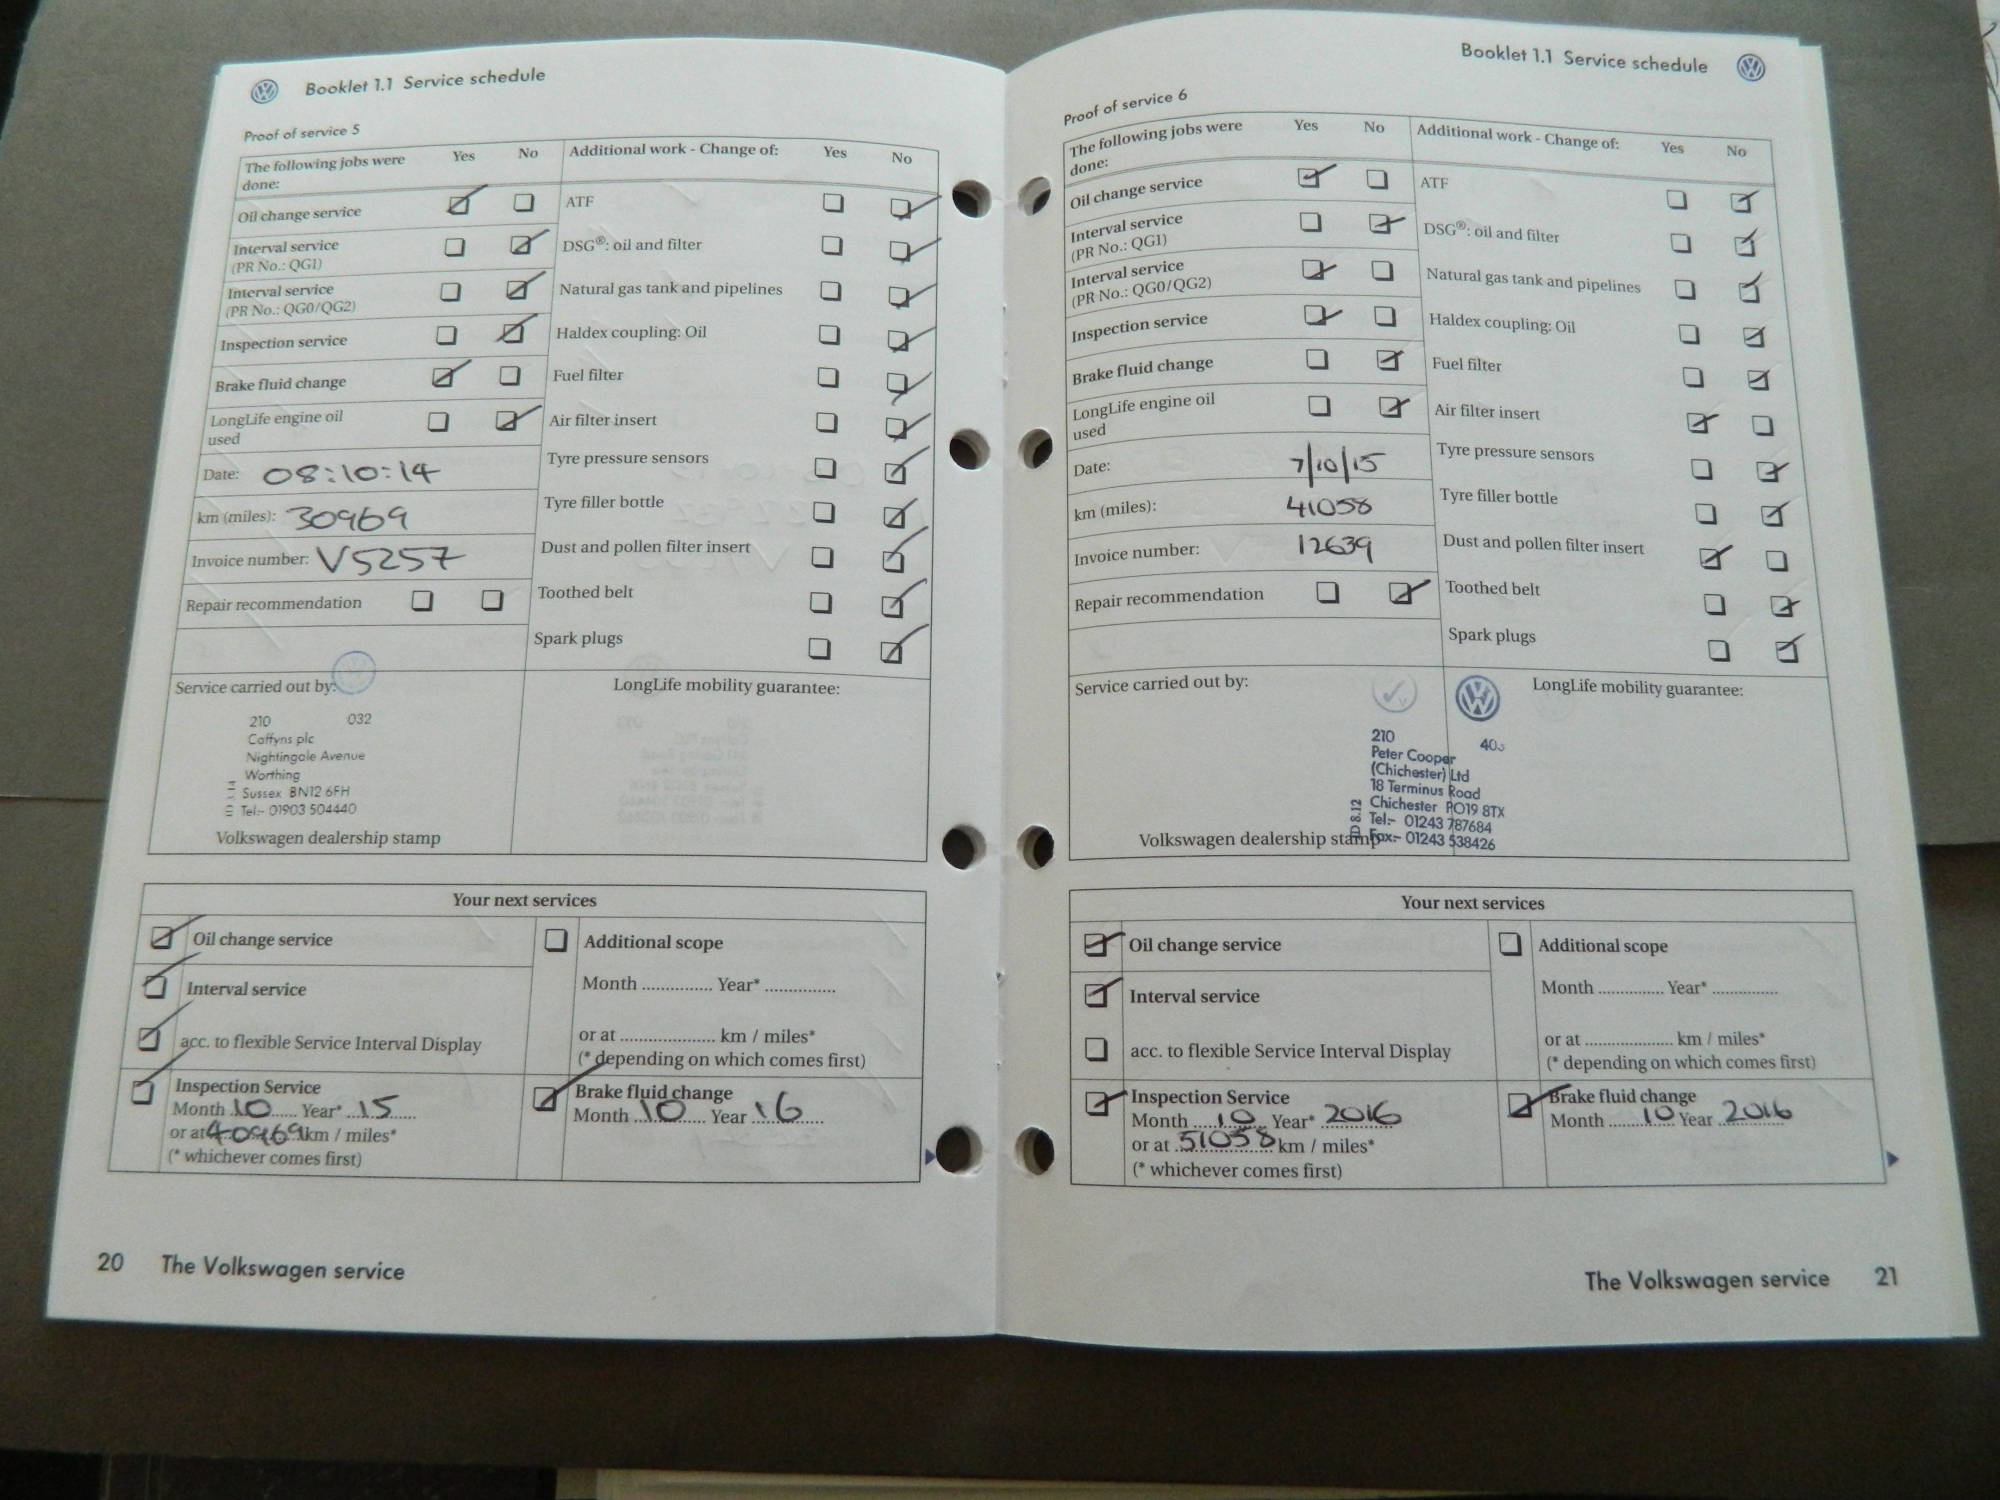 Booklet 1.1 Service schedule
Proof of service 5
The following jobs were done: Yes No Additional work - Change of: Yes No
Oil change service ATF
Interval service (PR No.: QG1) DSG®: oil and filter
Interval service (PR No.: QG0/QG2) Natural gas tank and pipelines
Inspection service Haldex coupling: Oil
Brake fluid change Fuel filter
LongLife engine oil used Air filter insert
Date: 08:10:14 Tyre pressure sensors
km (miles): 30969 Tyre filler bottle
Invoice number: V5257 Dust and pollen filter insert
Repair recommendation Toothed belt
Spark plugs
Service carried out by: LongLife mobility guarantee:
210 032
Caffyns plc
Nightingale Avenue
Worthing
Sussex BN12 6FH
Tel:- 01903 504440
Volkswagen dealership stamp
Your next services
Oil change service Additional scope
Interval service Month .............. Year* ..............
acc. to flexible Service Interval Display or at ..................... km / miles*
(* depending on which comes first)
Inspection Service Brake fluid change
Month 10 Year* 15 Month 10 Year 16
or at 40969 km / miles*
(* whichever comes first)
20 The Volkswagen service
Booklet 1.1 Service schedule
Proof of service 6
The following jobs were done: Yes No Additional work - Change of: Yes No
Oil change service ATF
Interval service (PR No.: QG1) DSG®: oil and filter
Interval service (PR No.: QG0/QG2) Natural gas tank and pipelines
Inspection service Haldex coupling: Oil
Brake fluid change Fuel filter
LongLife engine oil used Air filter insert
Date: 7/10/15 Tyre pressure sensors
km (miles): 41058 Tyre filler bottle
Invoice number: 12639 Dust and pollen filter insert
Repair recommendation Toothed belt
Spark plugs
Service carried out by: LongLife mobility guarantee:
210
Peter Cooper
(Chichester) Ltd
18 Terminus Road
Chichester PO19 8TX
Tel:- 01243 787684
Fax:- 01243 538426
Volkswagen dealership stamp
Your next services
Oil change service Additional scope
Interval service Month .............. Year* ..............
acc. to flexible Service Interval Display or at ..................... km / miles*
(* depending on which comes first)
Inspection Service Brake fluid change
Month 10 Year* 2016 Month 10 Year 2016
or at 51058 km / miles*
(* whichever comes first)
The Volkswagen service 21